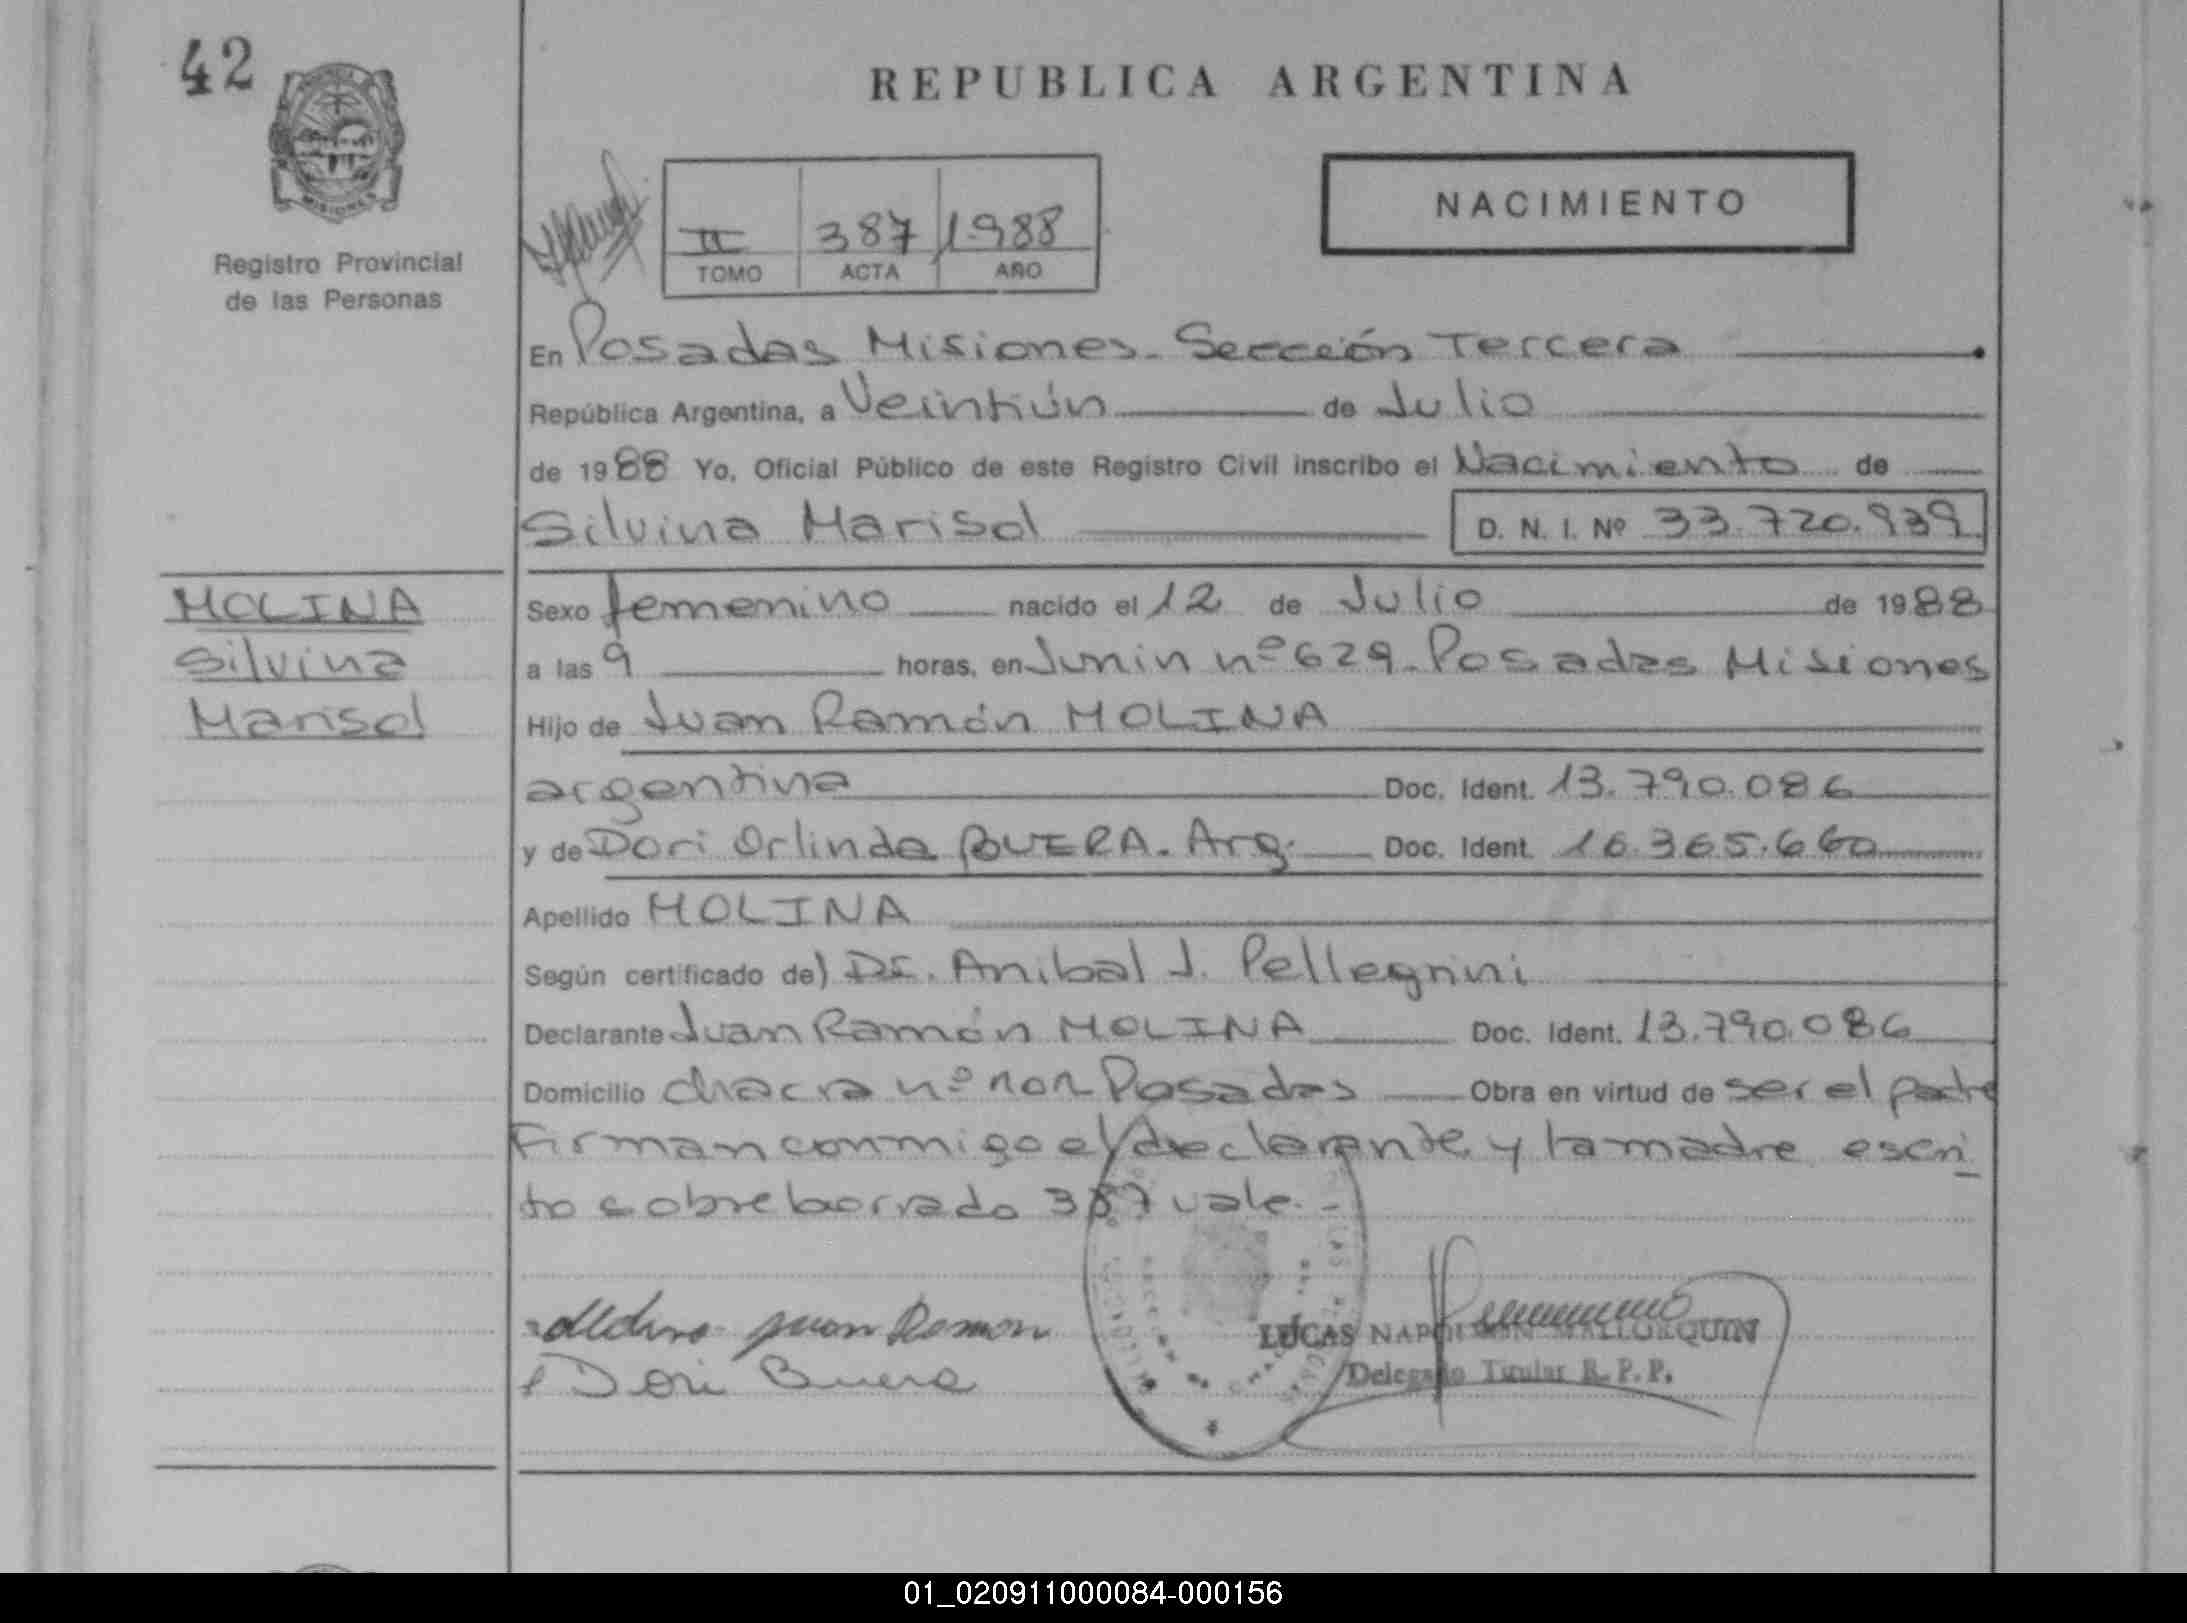 42
REPUBLICA ARGENTINA
MISIONES
Registro Provincial
de las Personas
II 387 1988
TOMO ACTA AÑO
NACIMIENTO
En Posadas Misiones. Sección Tercera
República Argentina, a Veintiún de Julio
de 1988 Yo, Oficial Público de este Registro Civil inscribo el Nacimiento de
Silvina Marisol D. N. I. Nº 33.720.939
MOLINA
Silvina
Marisol
Sexo femenino nacido el 12 de Julio de 1988
a las 9 horas, en Junin nº 629. Posadas Misiones
Hijo de Juan Ramón MOLINA
argentina Doc. Ident. 13.790.086
y de Dori Orlinda BUERA. Arg. Doc. Ident. 16.365.660
Apellido MOLINA
Según certificado de) Dr. Anibal J. Pellegrini
Declarante Juan Ramón MOLINA Doc. Ident. 13.790.086
Domicilio chacra nº Posadas Obra en virtud de ser el padre
Firman conmigo el declarante y la madre escri
to sobre borrado 387 vale.-
Juan Ramon
Dori Buera
LUCAS NAPOLEON MALLORQUIN
Delegado Titular R.P.P.
01_020911000084-000156